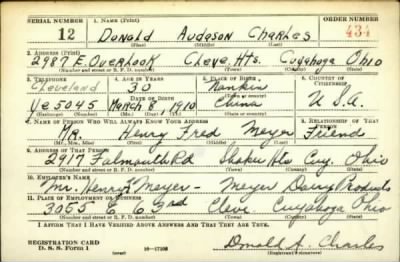 SERIAL NUMBER 1. NAME (Print) ORDER NUMBER
12 Donald Audason Charles 434
(First) (Middle) (Last)
2. ADDRESS (Print)
2987 E. Overlook Cleve. Hts. Cuyahoga Ohio
(Number and street or R. F. D. number) (Town) (County) (State)
3. TELEPHONE 4. AGE IN YEARS 5. PLACE OF BIRTH 6. COUNTRY OF CITIZENSHIP
Cleveland 30 Nankin
DATE OF BIRTH
Ye 5045 March 8, 1910 China U.S.A.
(Exchange) (Number) (Mo.) (Day) (Yr.) (State or country)
7. NAME OF PERSON WHO WILL ALWAYS KNOW YOUR ADDRESS 8. RELATIONSHIP OF THAT PERSON
Mr. Henry Fred Meyer Friend
(Mr., Mrs., Miss) (First) (Middle) (Last)
9. ADDRESS OF THAT PERSON
2917 Falmouth Rd Shaker Hts Cuy. Ohio
(Number and street or R. F. D. number) (Town) (County) (State)
10. EMPLOYER'S NAME
Mr. Henry F. Meyer - Meyer Dairy Products
11. PLACE OF EMPLOYMENT OR BUSINESS
3055 E 63rd Cleve. Cuyahoga Ohio
(Number and street or R. F. D. number) (Town) (County) (State)
I AFFIRM THAT I HAVE VERIFIED ABOVE ANSWERS AND THAT THEY ARE TRUE.
REGISTRATION CARD
D. S. S. Form 1 (over) 16-17105 Donald A. Charles
(Registrant's signature)